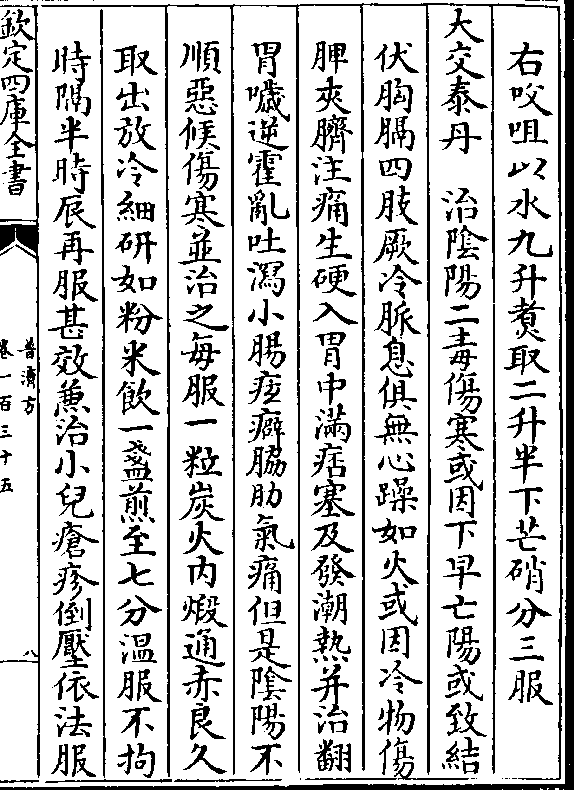 右㕮咀以水九升煑取二升半下芒硝分三服
大交泰丹　治隂陽二毒傷寒或因下早亡陽或致結
伏胸膈四肢厥冷脈息俱無心躁如火或因冷物傷
脾夾臍注痛生硬入胃中滿痞塞及發潮熱并治翻
胃噦逆霍亂吐瀉小腸疝癖脇肋氣痛但是隂陽不
順惡候傷寒並治之每服一粒炭火内煅通赤良久
取出放冷細研如粉米飲一盞煎至七分温服不拘
時隔半時辰再服甚效兼治小兒瘡疹倒壓依法服
欽定四庫全書
普濟方
卷一百三十五
八